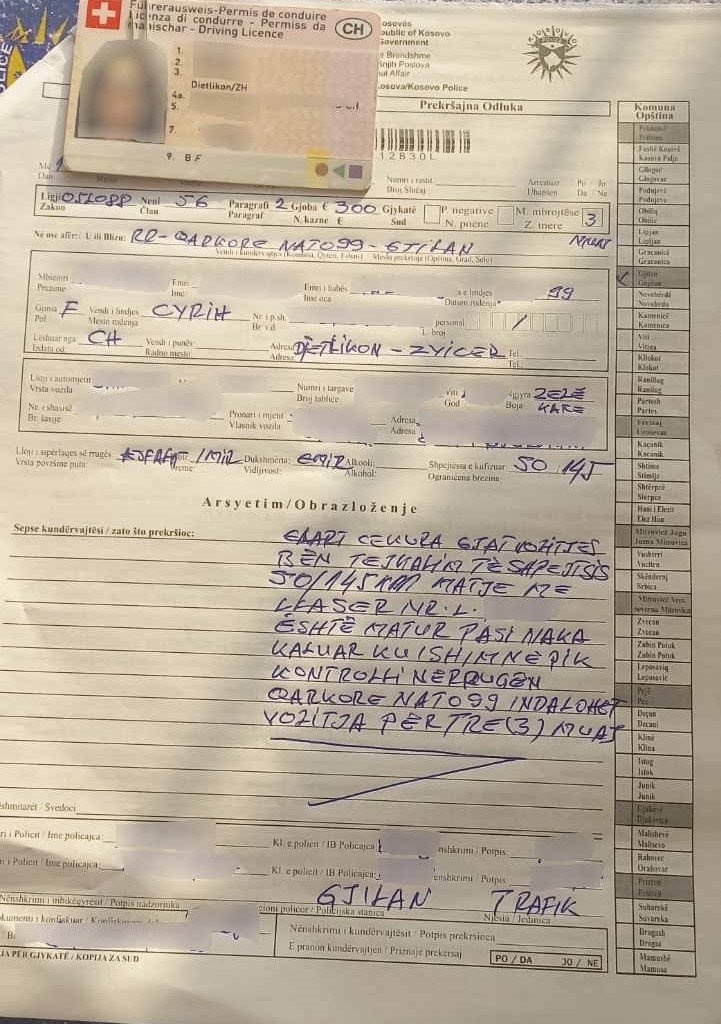 Führerausweis-Permis de conduire
Licenza di condurre - Permiss da
manischar - Driving Licence
CH
1.
2.
3.
Dietlikon/ZH
4a.
5.
7.
9. B F
osovës
public of Kosovo
Government
e Brendshme
Affair
Kosova/Kosovo Police
Prekršajna Odluka
12830L
Komuna
Opština
Numri i rastit
Broj Slučaj
Arrestuar
Uhapšen
Po / Jo
Da / Ne
Ligji 05L088 Neni 56 Paragrafi 2 Gjoba € 300 Gjykatë P. negative M. mbrojtëse 3
Zakon Član Paragraf N. kazne € Sud N. poene Z. mere
Në ose afër: / U ili Blizu: RR-QARKORE NATO 99-GJILAN MUAJ
Mbiemri
Prezime
Emri
Ime
Emri i babës
Ime oca
e lindjes
Datum rođenja
99
Gjinia F Vendi i lindjes CYRIH
Pol Mesto rođenja
personal /
L. broj
Lëshuar nga CH Vendi i punës Adresa DIETLIKON - ZVICER Tel.
Izdata od: Radno mesto: Adresa Tel.:
Lloji i automjetit
Vrsta vozila
Numri i targave
Broj tablice
viti
God
Ngjyra ZEZË
Boja: KAKE
Nr. i shasisë
Br. šasije
Pronari i mjetit
Vlasnik vozila
Adresa
Adresa
Lloji i sipërfaqes së rrugës ASFALT / MIR Dukshmëria: E MIR Alkooli: Shpejtësia e kufizuar 50 / 145
Vrsta površine puta: Vreme: Vidljivost: Alkohol: Ograničena brzina:
Arsyetim/Obrazloženje
Sepse kundërvajtësi / zato što prekršioc:
E LART CEKURA GJAT VOZITJES
BËN TEJKALIM TË SHPEJTSIS
50/145 KM MATJE ME
LLASER NR. L.
ËSHTË MATUR PASI NAKA
KALUAR KU ISHIM NË PIK
KONTROLLI NË RRUGËN
QARKORE NATO 99 INDALOHET
VOZITJA PËR TRE (3) MUAJ
Dëshmitarët - Svedoci
ri i Policit / Ime policajca: Kl. e policit / IB Policajca: Nënshkrimi / Potpis:
ri i Policit / Ime policajca: Kl. e policit / IB Policajca: Nënshkrimi / Potpis:
GJILAN TRAFIK
Nënshkrimi i mbikëqyrësit / Potpis nadzornika
Stacioni policor / Policijska stanica
Njësia / Jedinica
Nënshkrimi i kundërvajtësit / Potpis prekršioca
E pranon kundërvajtjen / Priznaje prekršaj
PO / DA JO / NE
JA PËR GJYKATË / KOPIJA ZA SUD
Fushë Kosovë
Kosovo Polje
Gllogoc
Glogovac
Podujevë
Podujevo
Obiliq
Obilić
Lipjan
Lipljan
Graçanicë
Gračanica
Gjilan
Gnjilane
Novobërdë
Novo Brdo
Kamenicë
Kamenica
Viti
Vitina
Kllokot
Klokot
Ranillug
Ranilug
Partesh
Parteš
Ferizaj
Uroševac
Kaçanik
Kačanik
Shtime
Štimlje
Shtërpcë
Štrpce
Hani i Elezit
Elez Han
Mitrovicë Jugu
Južna Mitrovica
Vushtrri
Vučitrn
Skënderaj
Srbica
Mitrovicë Veri
Severna Mitrovica
Zveçan
Zvečan
Zubin Potok
Zubin Potok
Leposaviq
Leposavić
Pejë
Peć
Deçan
Dečani
Klinë
Klina
Istog
Istok
Junik
Junik
Gjakovë
Đakovica
Malishevë
Mališevo
Rahovec
Orahovac
Prizren
Prizren
Suharekë
Suvareka
Dragash
Dragaš
Mamushë
Mamuša